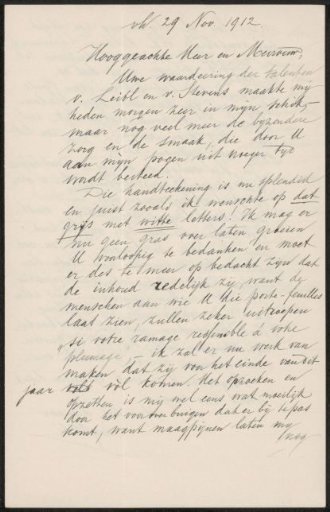 vh. 29 Nov. 1912.
Hooggeachte Heer en Mevrouw,
Uwe waardeering der talenten
v. Leibl en v. Stevens maakte mij
heden morgen zeer in mijn schik,
maar nog veel meer de byzondere
zorg en de smaak, die door U
aan mijn pogen uit vroeger tijd
wordt besteed.
Die handteekening is nu splendid
en juist zooals ik wenschte op dat
grijs met witte letters! Ik mag er
nu geen gras over laten groeien
U voorloopig te bedanken en moet
er des te meer op bedacht zijn dat
de inhoud redelijk zij, want de
menschen aan wie U die porte-feuilles
laat zien, zullen zeker uitroepen
"si votre ramage ressemble à votre
plumage", ik zal er nu werk van
maken dat zij voor het einde van dit
jaar vol komen. Het opzoeken en
opzetten is mij wel eens wat moeilijk
door het voorover buigen dat er bij te pas
komt, want maagpijnen laten mij
nog